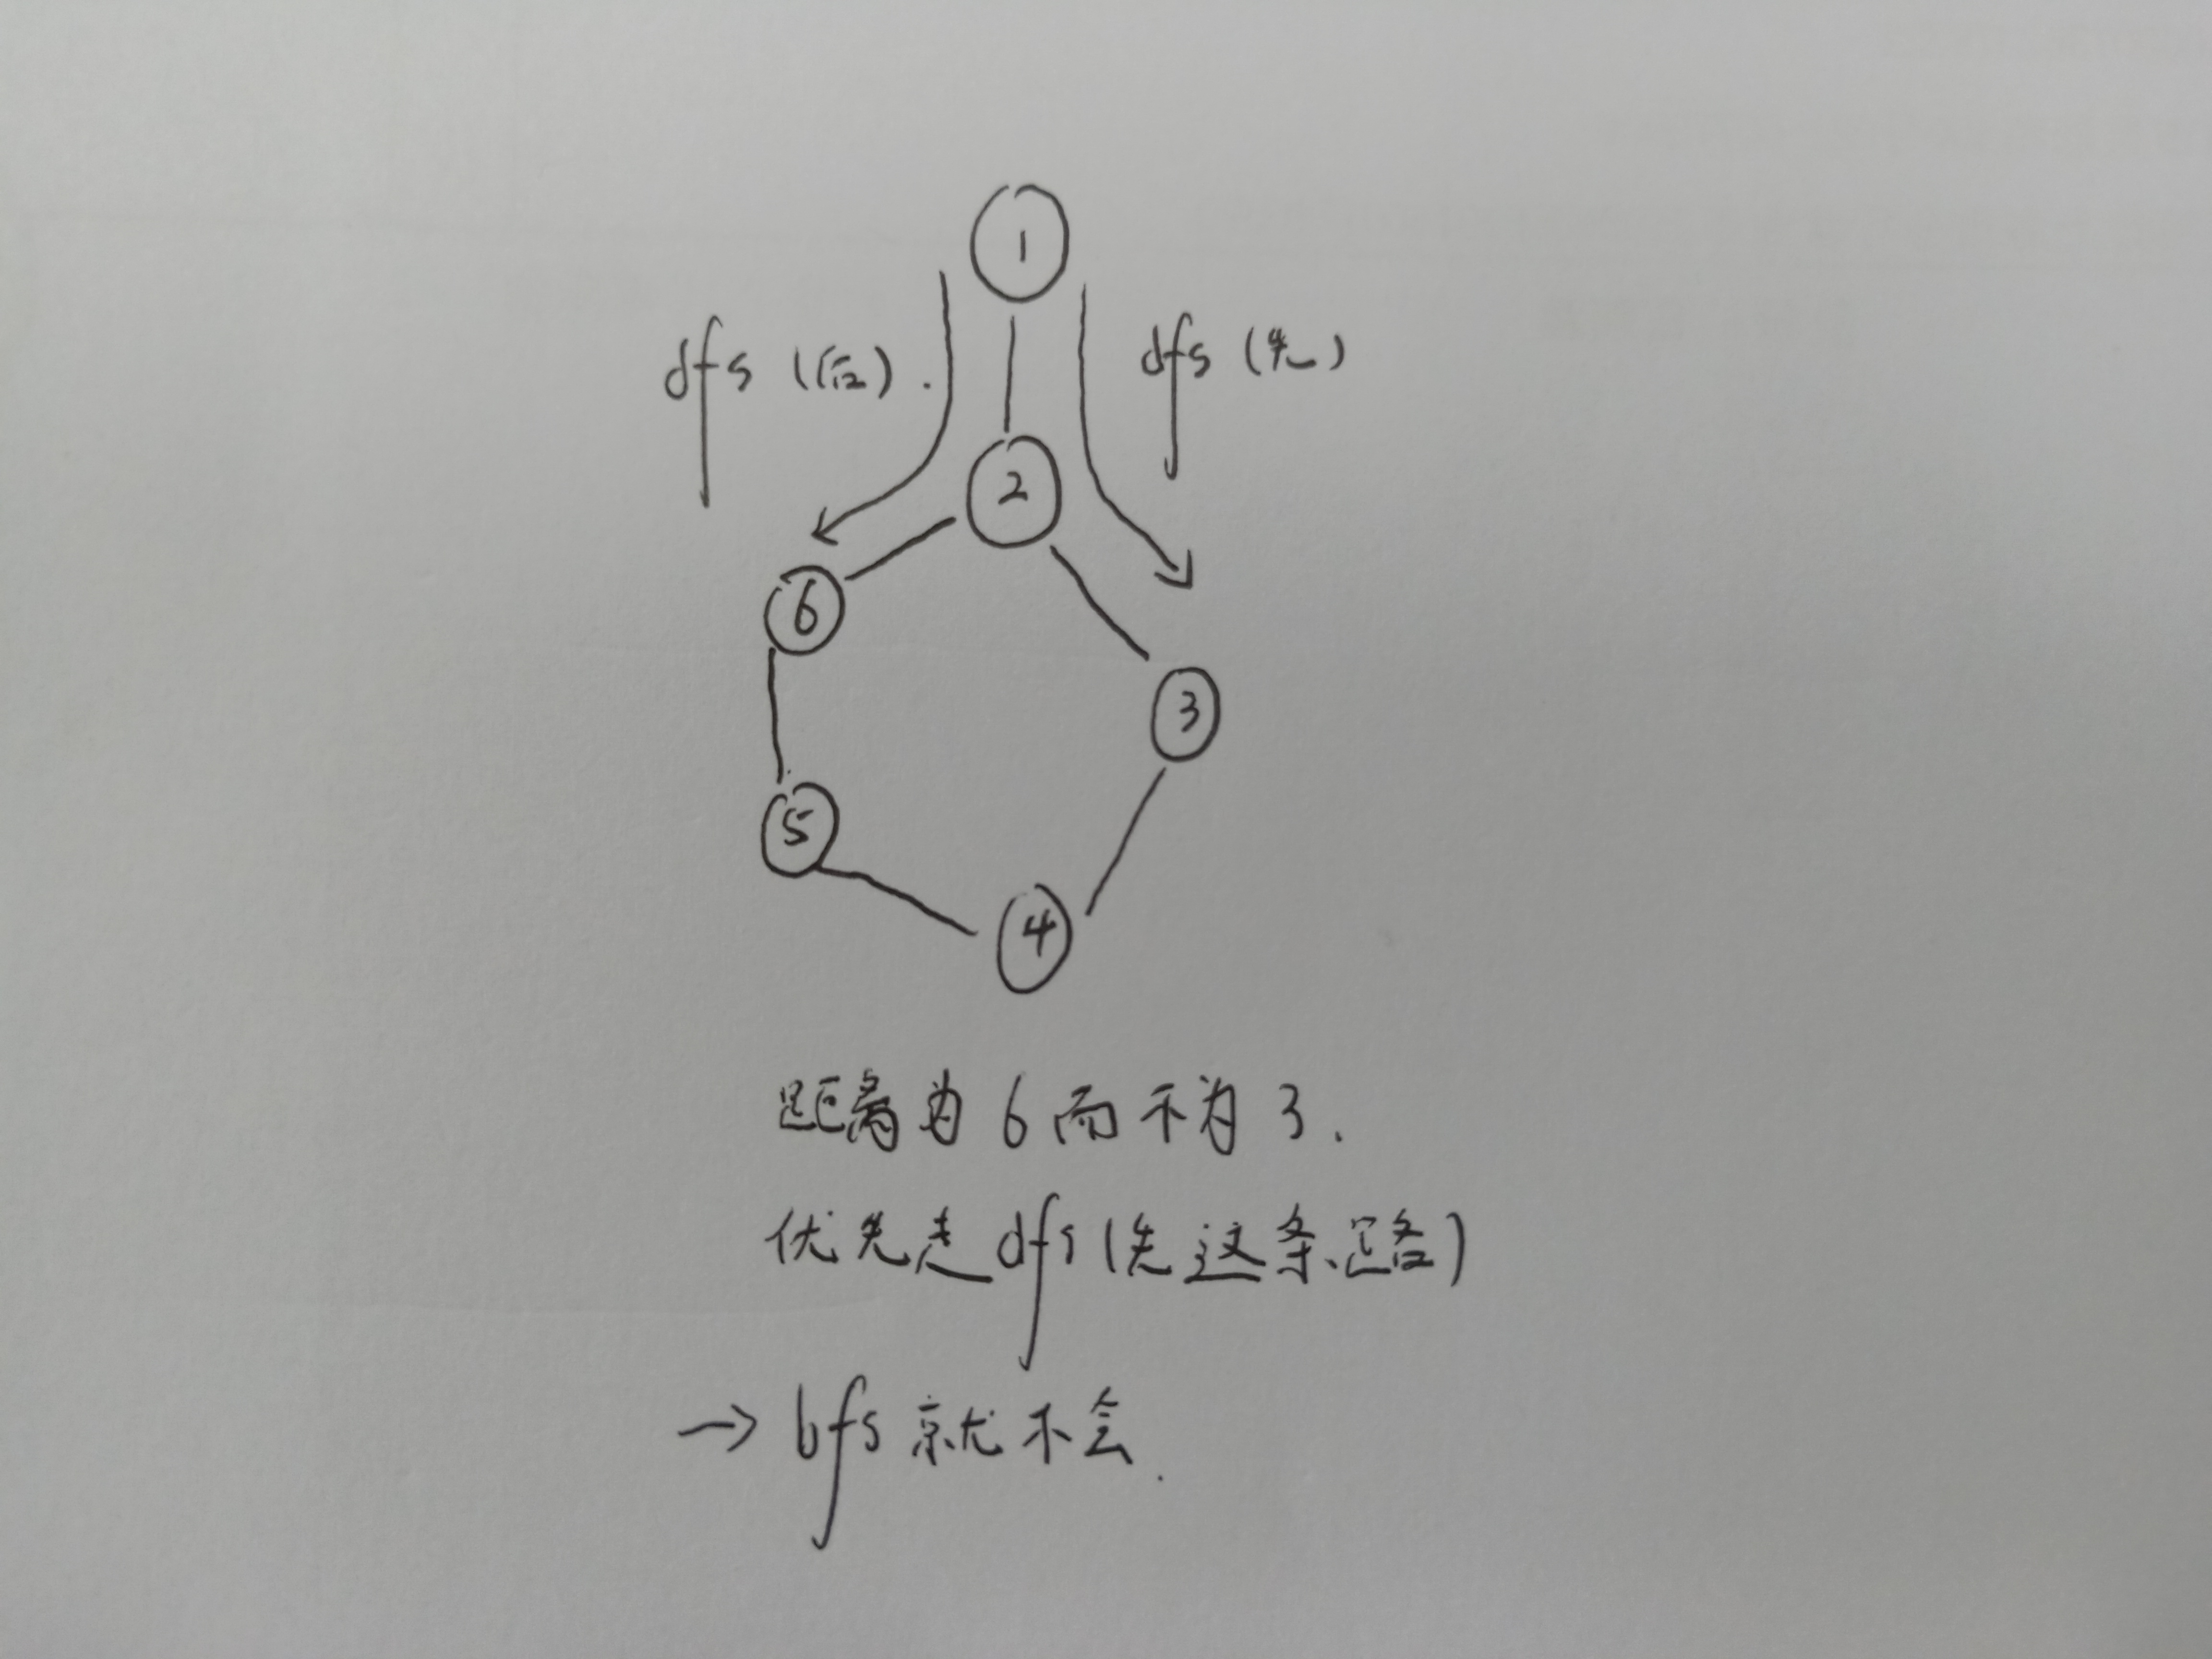 1
dfs (后).
dfs (先)
2
6
3
5
4
距离为 6 而不为 3.
优先走 dfs (先这条路)
→ bfs 就不会.